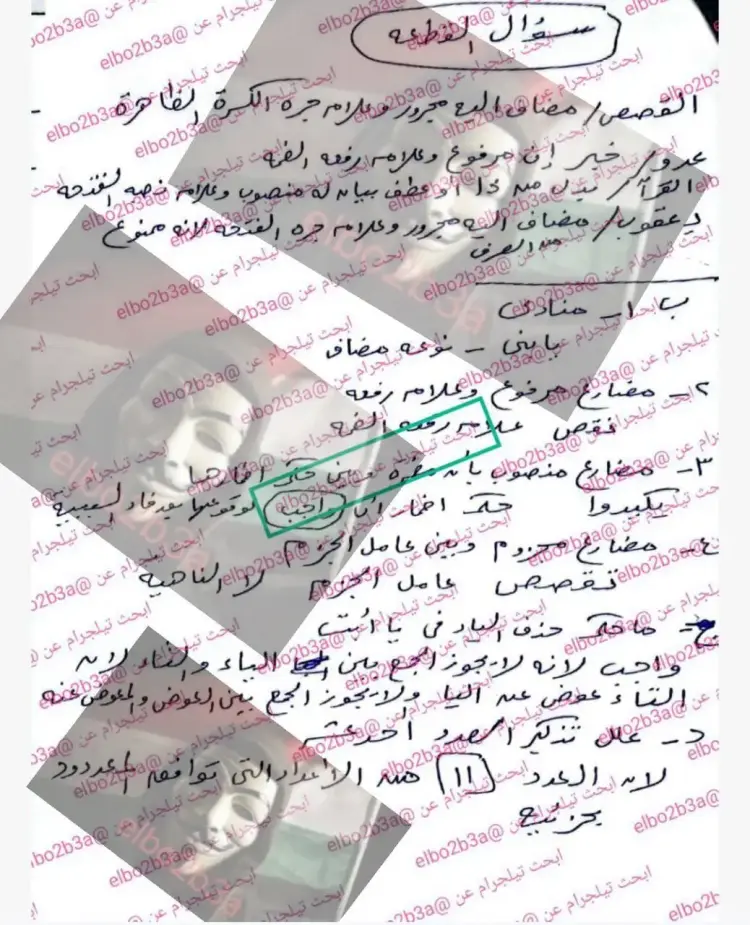 سؤال القطعه
القصص / مضاف اليه مجرور وعلامه جره الكسرة الظاهرة
عدو / خبر إن مرفوع وعلامه رفعه الضمه
القرآن / بدل من هذا او عطف بيان له منصوب وعلامه نصبه الفتحه
يعقوب / مضاف اليه مجرور وعلامه جره الفتحه لانه ممنوع
من الصرف
ب ١- منادى
يا بنى - نوعه مضاف
٢- مضارع مرفوع وعلامه رفعه
نقص علامه رفعه الضمه
٣- مضارع منصوب بأن مضمره وبين حكم اضمارها
يكيدوا حكم اضمار أن واجب لوقوعها بعد فاء السببيه
٤- مضارع مجزوم وبين عامل الجزم
تقصص عامل الجزم لا الناهيه
ج- ما حكم حذف الياء فى يا أبت
واجب لانه لا يجوز الجمع بين الياء والتاء لان
التاء عوض عن اليا ولا يجوز الجمع بين العوض والمعوض عنه
د- علل تذكير العدد أحد عشر
لان العدد 11 من الاعداد التى توافق المعدود
بجزئيه
ابحث تيلجرام عن @elbo2b3a